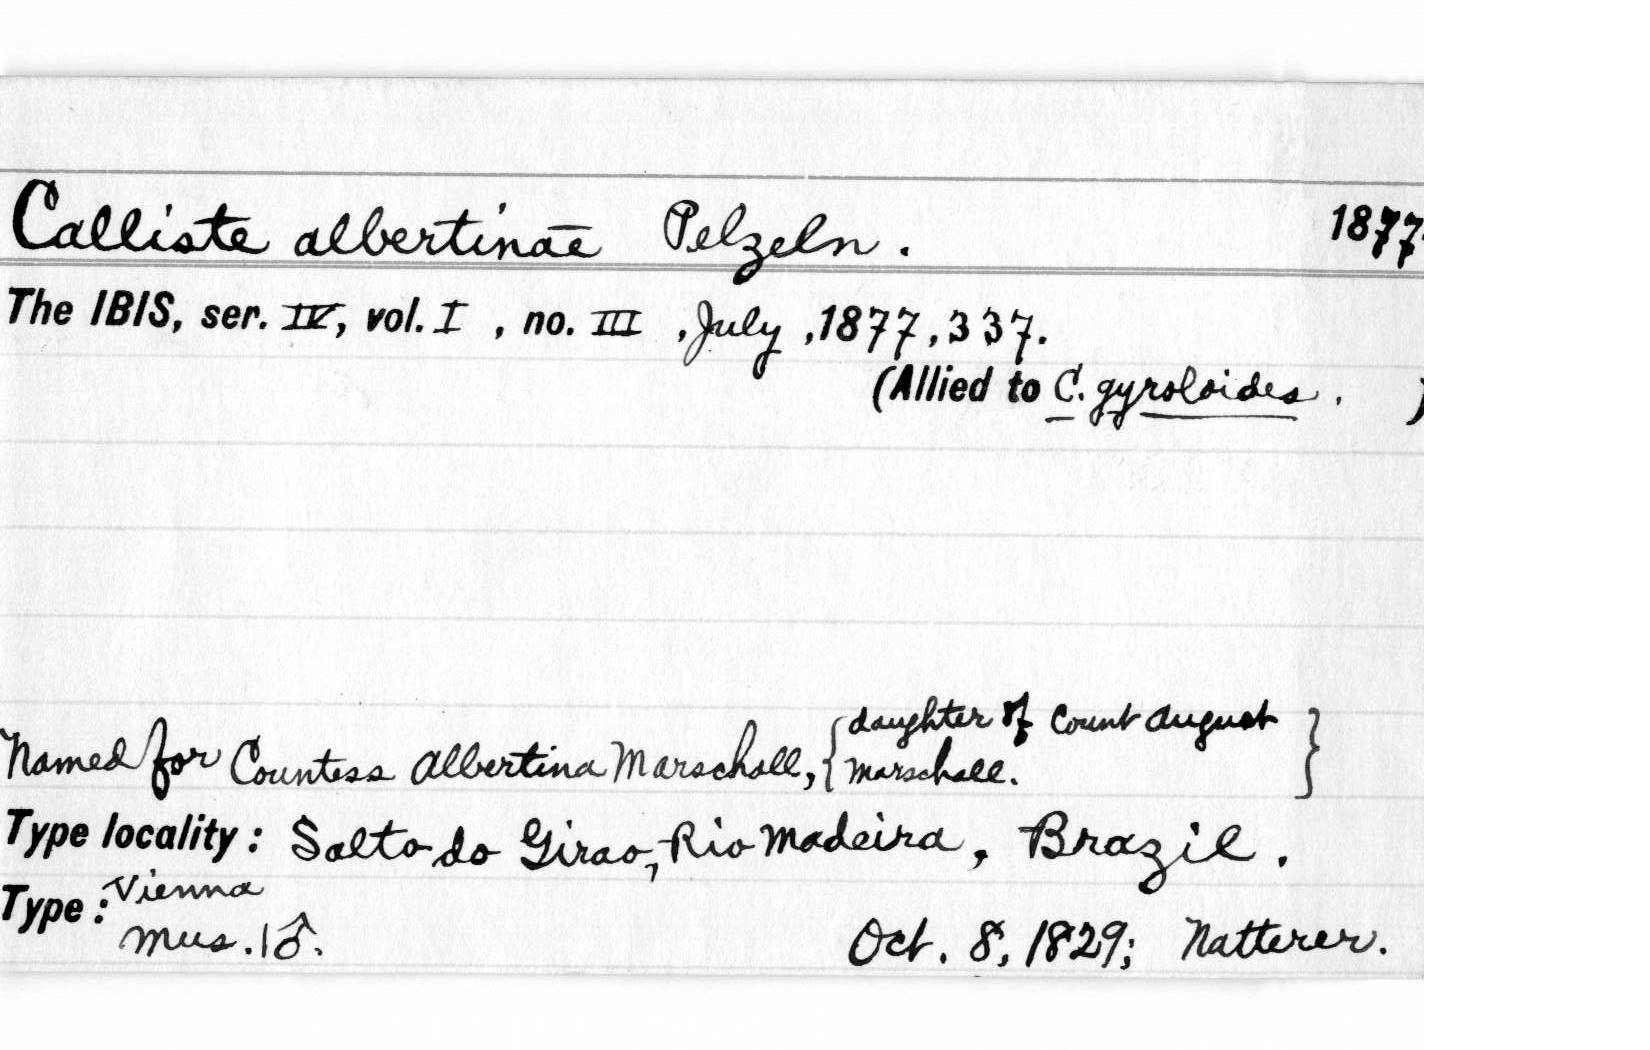 Calliste albertinae Pelzeln. 1877.
The IBIS, ser. IV, vol. I , no. III , July , 1877, 337.
(Allied to C. gyroloides. )
Named for Countess Albertina Marschall, {daughter of Count August
Marschall. }
Type locality: Salto do Girao, Rio Madeira, Brazil.
Type: Vienna
Mus. 1♂. Oct. 8, 1829; Natterer.